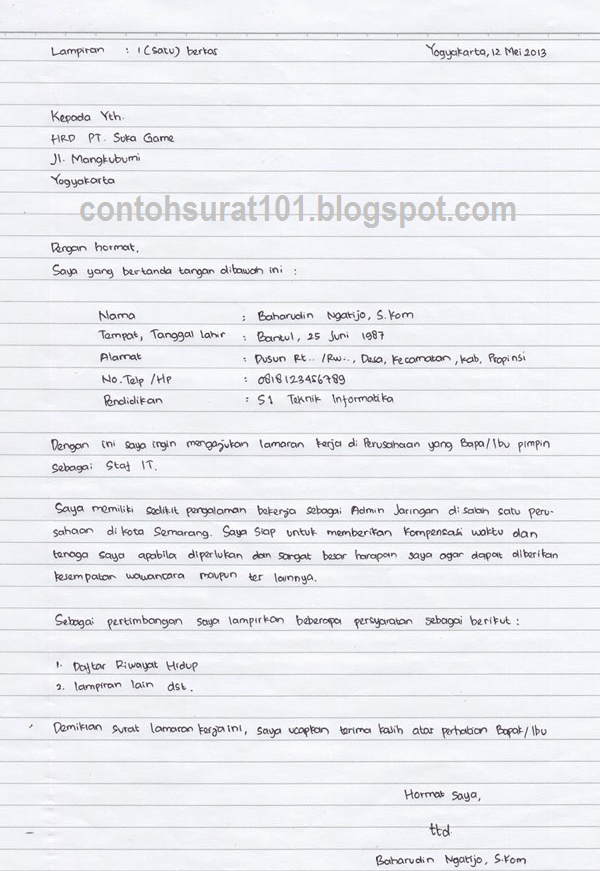 Lampiran : 1 (satu) berkas Yogyakarta, 12 Mei 2013
Kepada Yth.
HRD PT. Suka Game
Jl. Mangkubumi
Yogyakarta
contohsurat101.blogspot.com
Dengan hormat,
Saya yang bertanda tangan dibawah ini :
Nama : Baharudin Ngatijo, S.Kom
Tempat, Tanggal lahir : Bantul, 25 Juni 1987
Alamat : Dusun Rt.. /Rw.., Desa, Kecamatan, Kab, Propinsi
No.Telp /Hp : 0818123456789
Pendidikan : S1 Teknik Informatika
Dengan ini saya ingin mengajukan lamaran kerja di Perusahaan yang Bapa/Ibu pimpin
sebagai Staf IT.
Saya memiliki sedikit pengalaman bekerja sebagai Admin Jaringan di salah satu peru-
sahaan di kota Semarang. Saya siap untuk memberikan kompensasi waktu dan
tenaga saya apabila diperlukan dan sangat besar harapan saya agar dapat diberikan
kesempatan wawancara maupun tes lainnya.
Sebagai pertimbangan saya lampirkan beberapa persyaratan sebagai berikut :
1. Daftar Riwayat Hidup
2. lampiran lain dst.
Demikian surat lamaran kerja ini, saya ucapkan terima kasih atas perhatian Bapak/Ibu
Hormat saya,
ttd
Baharudin Ngatijo, S.Kom